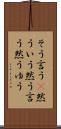 そう言う 然
ういう然う言
う然うゆう